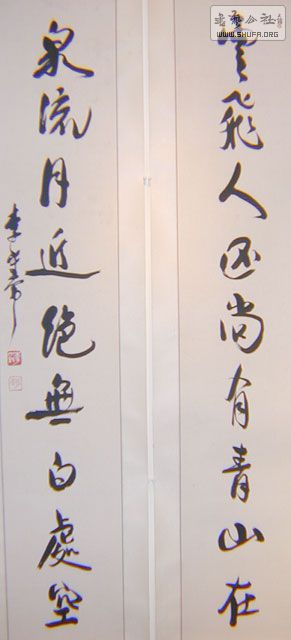 書藝公社
WWW.SHUFA.ORG
雲飛人尚有青山在
泉流月近絕無白處空
李